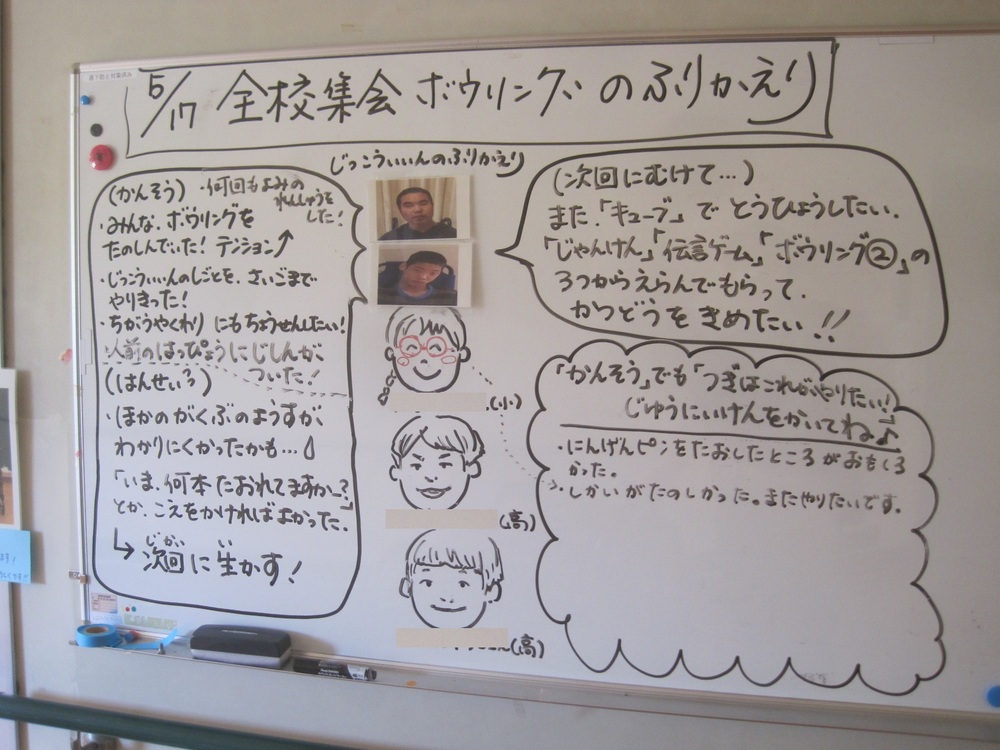 5/17 全校集会 ボウリング のふりかえり
じっこういいんのふりかえり
(かんそう)
・何回もよみの
れんしゅうを
した!
・みんな、ボウリングを
たのしんでいた! テンション↑
・じっこういいんのしごとを、さいごまで
やりきった!
・ちがうやくわり にもちょうせんしたい!
人前のはっぴょうにじしんが、
ついた!
(はんせい)
・ほかのがくぶのようすが、
わかりにくかったかも…
「いま、何本たおれてますか〜?」
とか、こえをかければよかった.
↳ 次回に生かす!
じかい い
(小)
(高)
(高)
(次回にむけて…)
また、「キューブ」で とうひょうしたい.
「じゃんけん」「伝言ゲーム」「ボウリング②」の
3つからえらんでもらって、
かつどうを きめたい!!
「かんそう」でも「つぎはこれがやりたい!」
じゆうにいけんをかいてね♪
・にんげんピンをたおしたところがおもしろ
かった。
・しかいがたのしかった。またやりたいです。